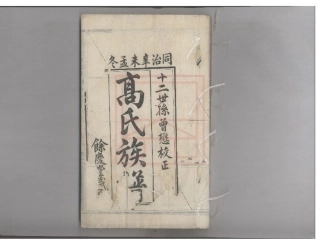 同治辛未孟冬
十二世孫曾懋校正
高氏族譜
餘慶堂